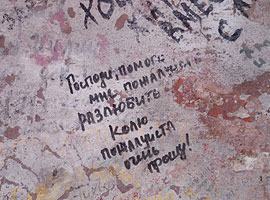 ХО
Господи, помоги
мне пожалуйста
РАЗЛЮБИТЬ
Колю
пожалуйста
очень
прошу!